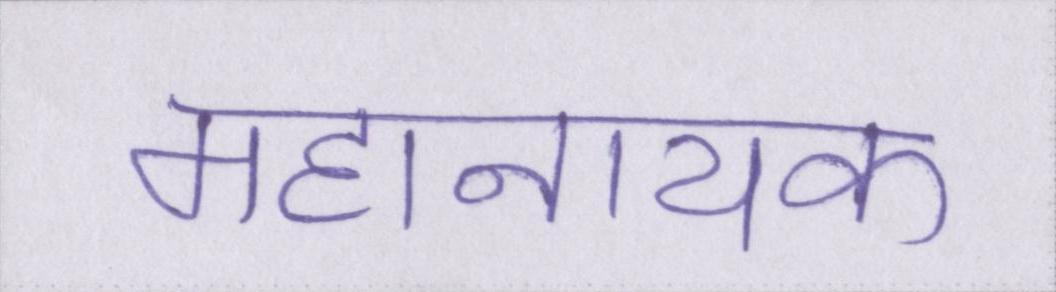 महानायक